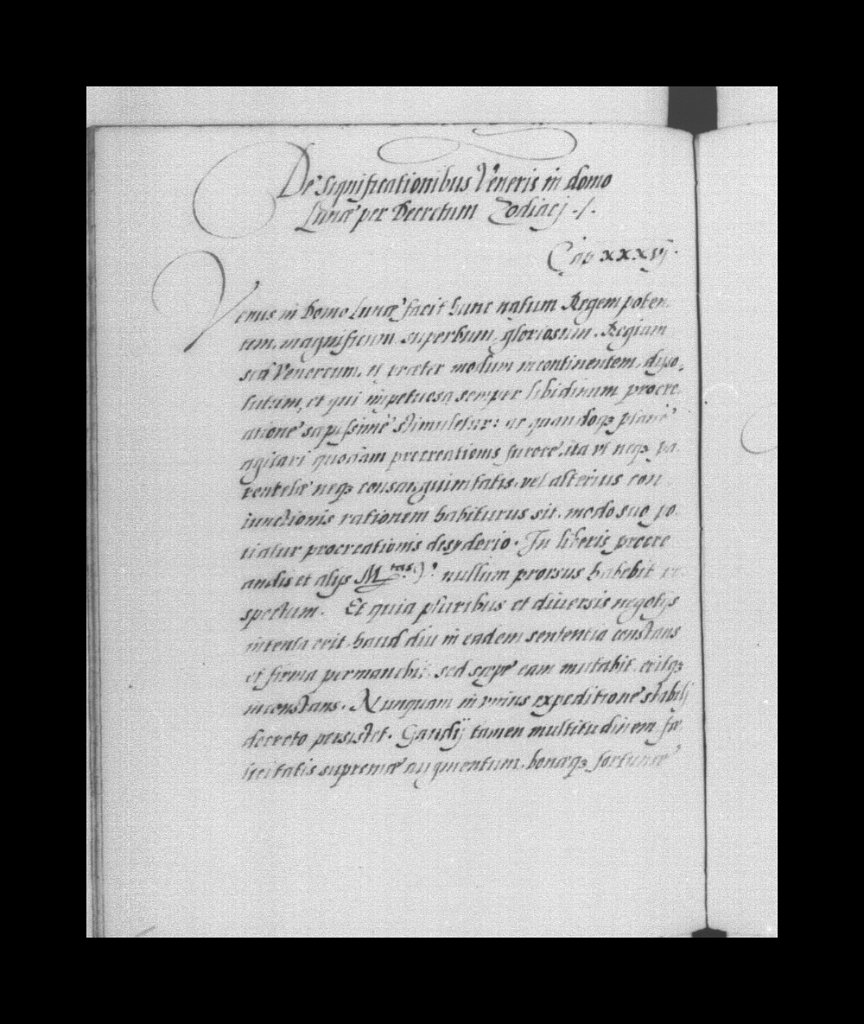 De significationibus Veneris in domo
Lunæ per Decretum Zodiacj ./.
Cap xxxvj.
Venus in Domo Lunæ facit hunc natum Regem poten
tem, magnificum, superbum, gloriosum. Regium
Venereum, et præter modum incontinentem, disso,
lutum, et qui impetuosa semper libidinum procre
atione sæpissimè stimuletur: ac quandoqꝫ planè
agitari quodam procreationis furore, ita vt neqꝫ pa
rentelæ neqꝫ consanguinitatis, vel alterius con
iunctionis rationem habiturus sit, modo suo po
tiatur procreationis desyderio. In liberis procre
andis et alijs M.tas nullum prorsus habebit re
spectum. Et quia pluribus et diuersis negotijs
intenta erit, haud diu in eadem sententia constans
et firma permanebit, sed sæpè eam mutabit, eritqꝫ
inconstans. Nunquam in vnius expeditione stabilj
decreto persistet. Gaudij tamen multitudinem, fœ
licitatis supremæ augmentum, bonæqꝫ fortunæ